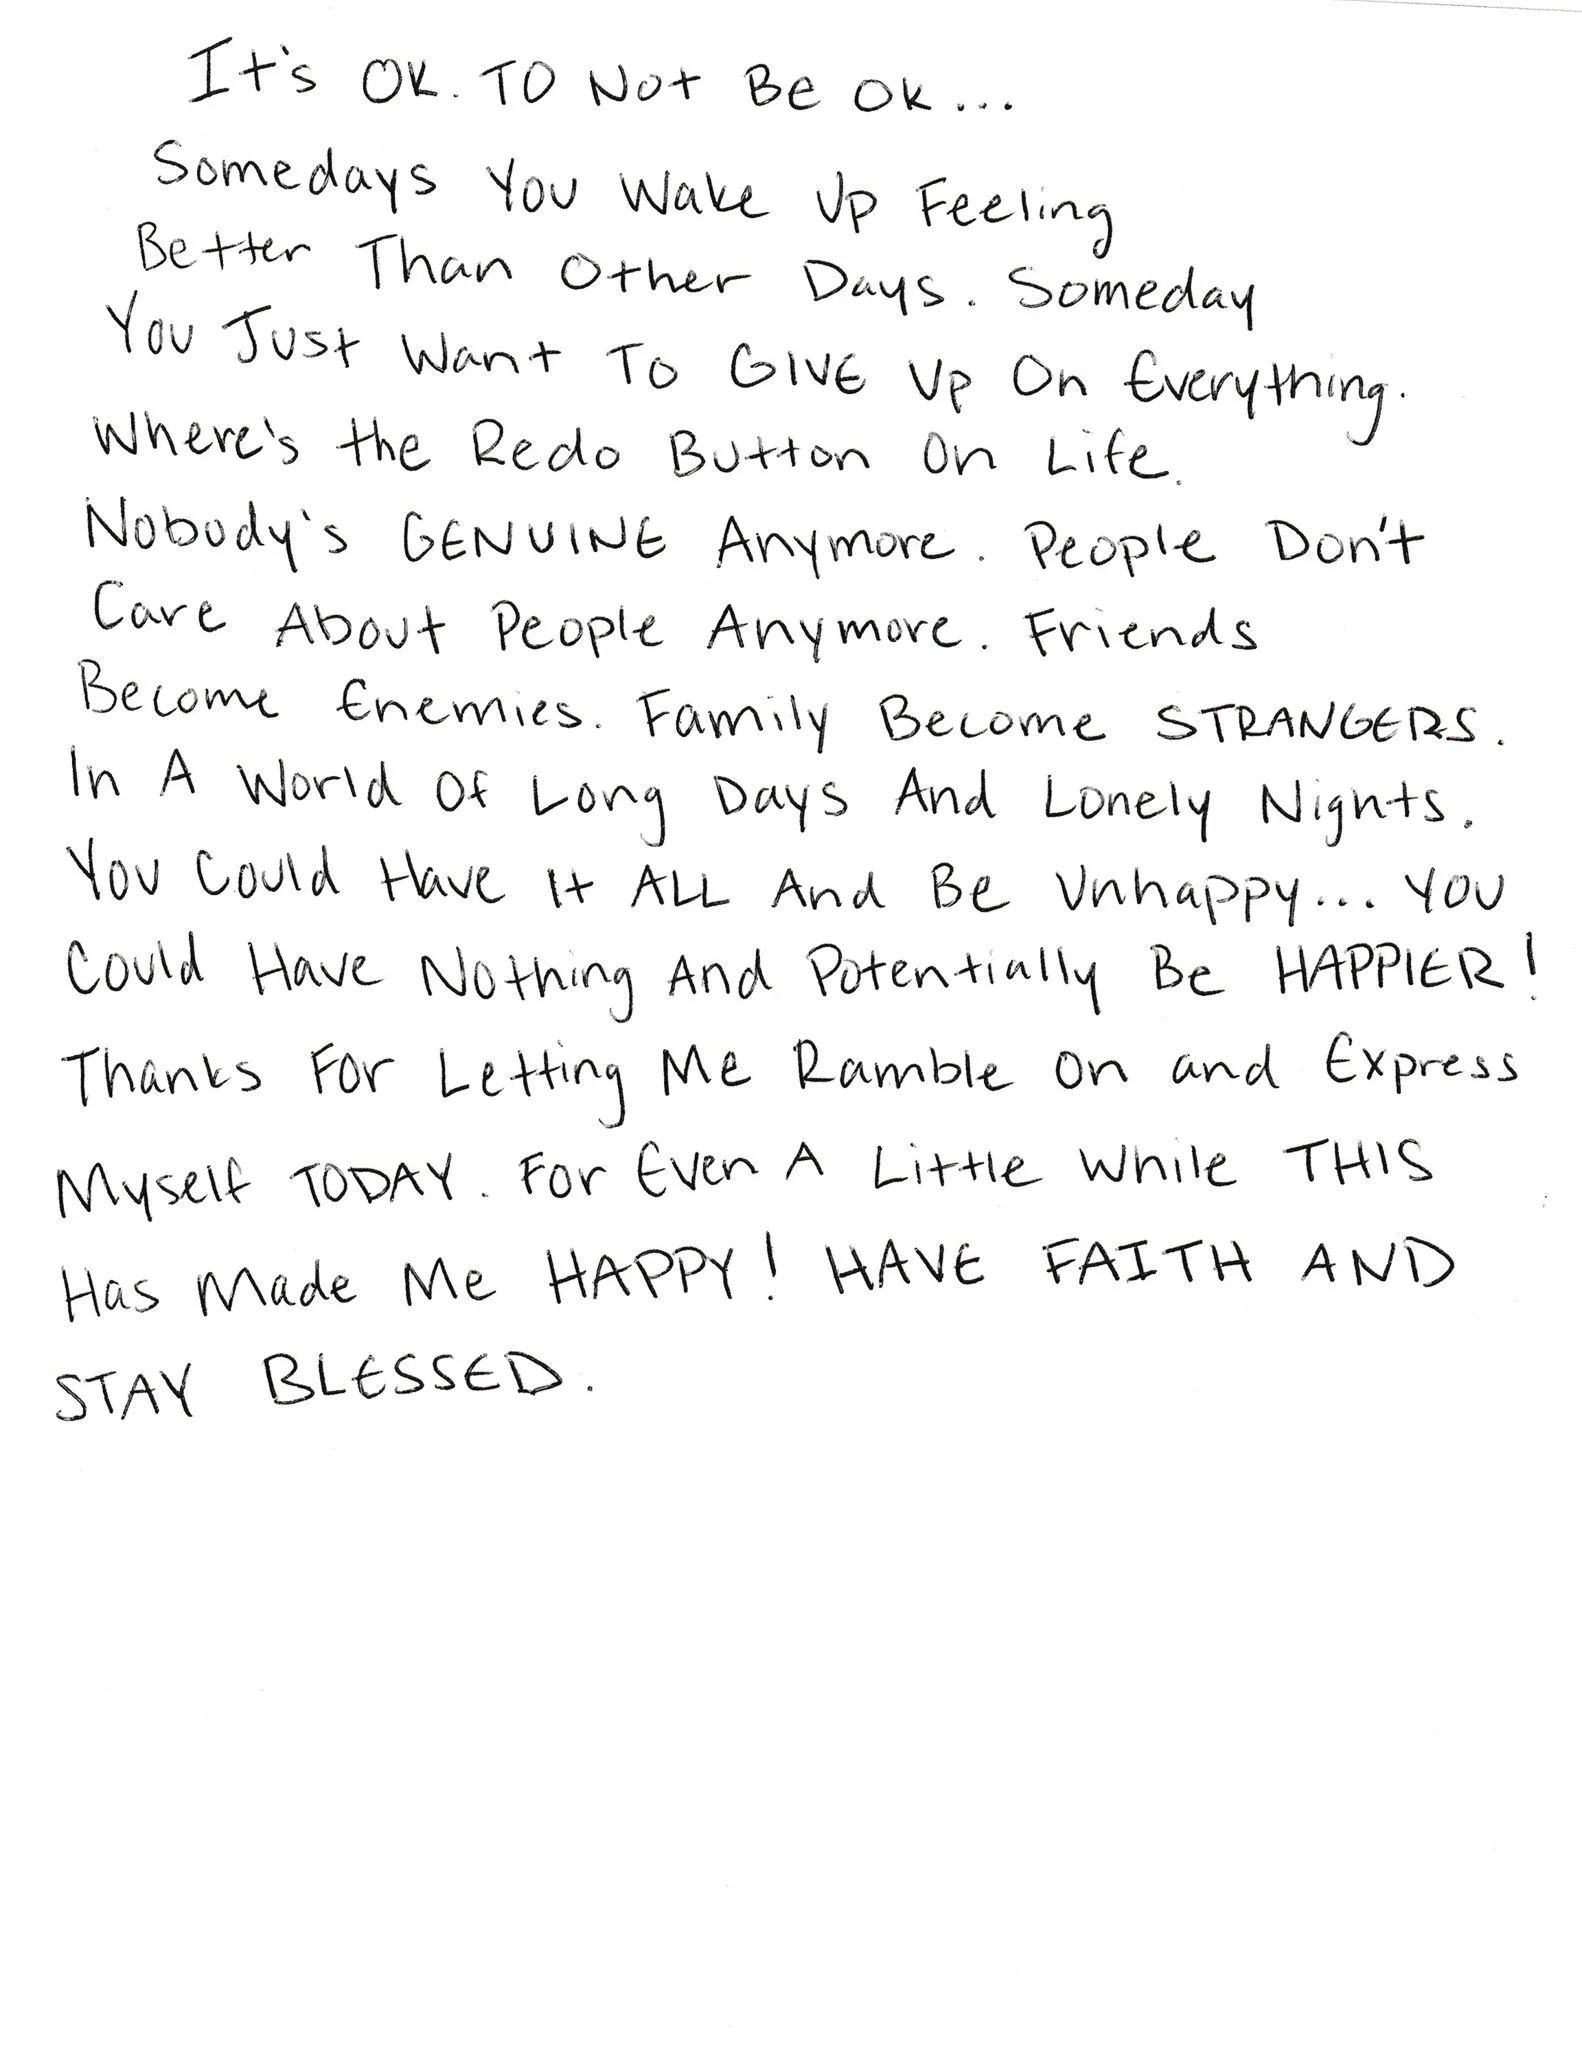 It's OK. TO Not Be OK...
Somedays You Wake Up Feeling
Better Than Other Days. Someday
You Just Want To GIVE Up On Everything.
Where's the Redo Button On Life.
Nobody's GENUINE Anymore. People Don't
Care About People Anymore. Friends
Become Enemies. Family Become STRANGERS.
In A World Of Long Days And Lonely Nights.
You Could Have It ALL And Be Unhappy... You
Could Have Nothing And Potentially Be HAPPIER!
Thanks For Letting Me Ramble On and Express
Myself TODAY. For Even A Little While THIS
Has Made Me HAPPY! HAVE FAITH AND
STAY BLESSED.